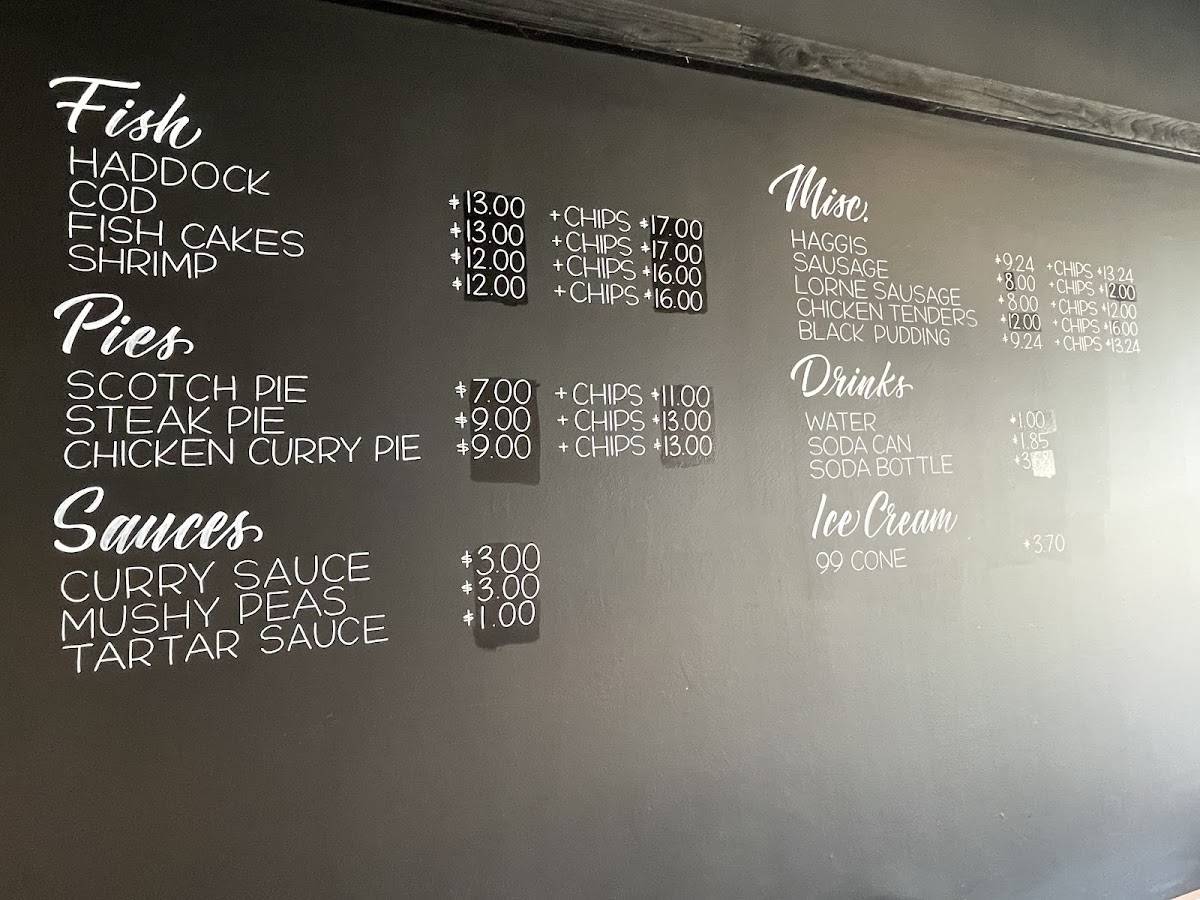 Fish
HADDOCK $13.00 + CHIPS $17.00
COD $13.00 + CHIPS $17.00
FISH CAKES $12.00 + CHIPS $16.00
SHRIMP $12.00 + CHIPS $16.00
Pies
SCOTCH PIE $7.00 + CHIPS $11.00
STEAK PIE $9.00 + CHIPS $13.00
CHICKEN CURRY PIE $9.00 + CHIPS $13.00
Sauces
CURRY SAUCE $3.00
MUSHY PEAS $3.00
TARTAR SAUCE $1.00
Misc.
HAGGIS $9.24 + CHIPS $13.24
SAUSAGE $8.00 + CHIPS $12.00
LORNE SAUSAGE $8.00 + CHIPS $12.00
CHICKEN TENDERS $12.00 + CHIPS $16.00
BLACK PUDDING $9.24 + CHIPS $13.24
Drinks
WATER $1.00
SODA CAN $1.85
SODA BOTTLE
Ice Cream
99 CONE $3.70